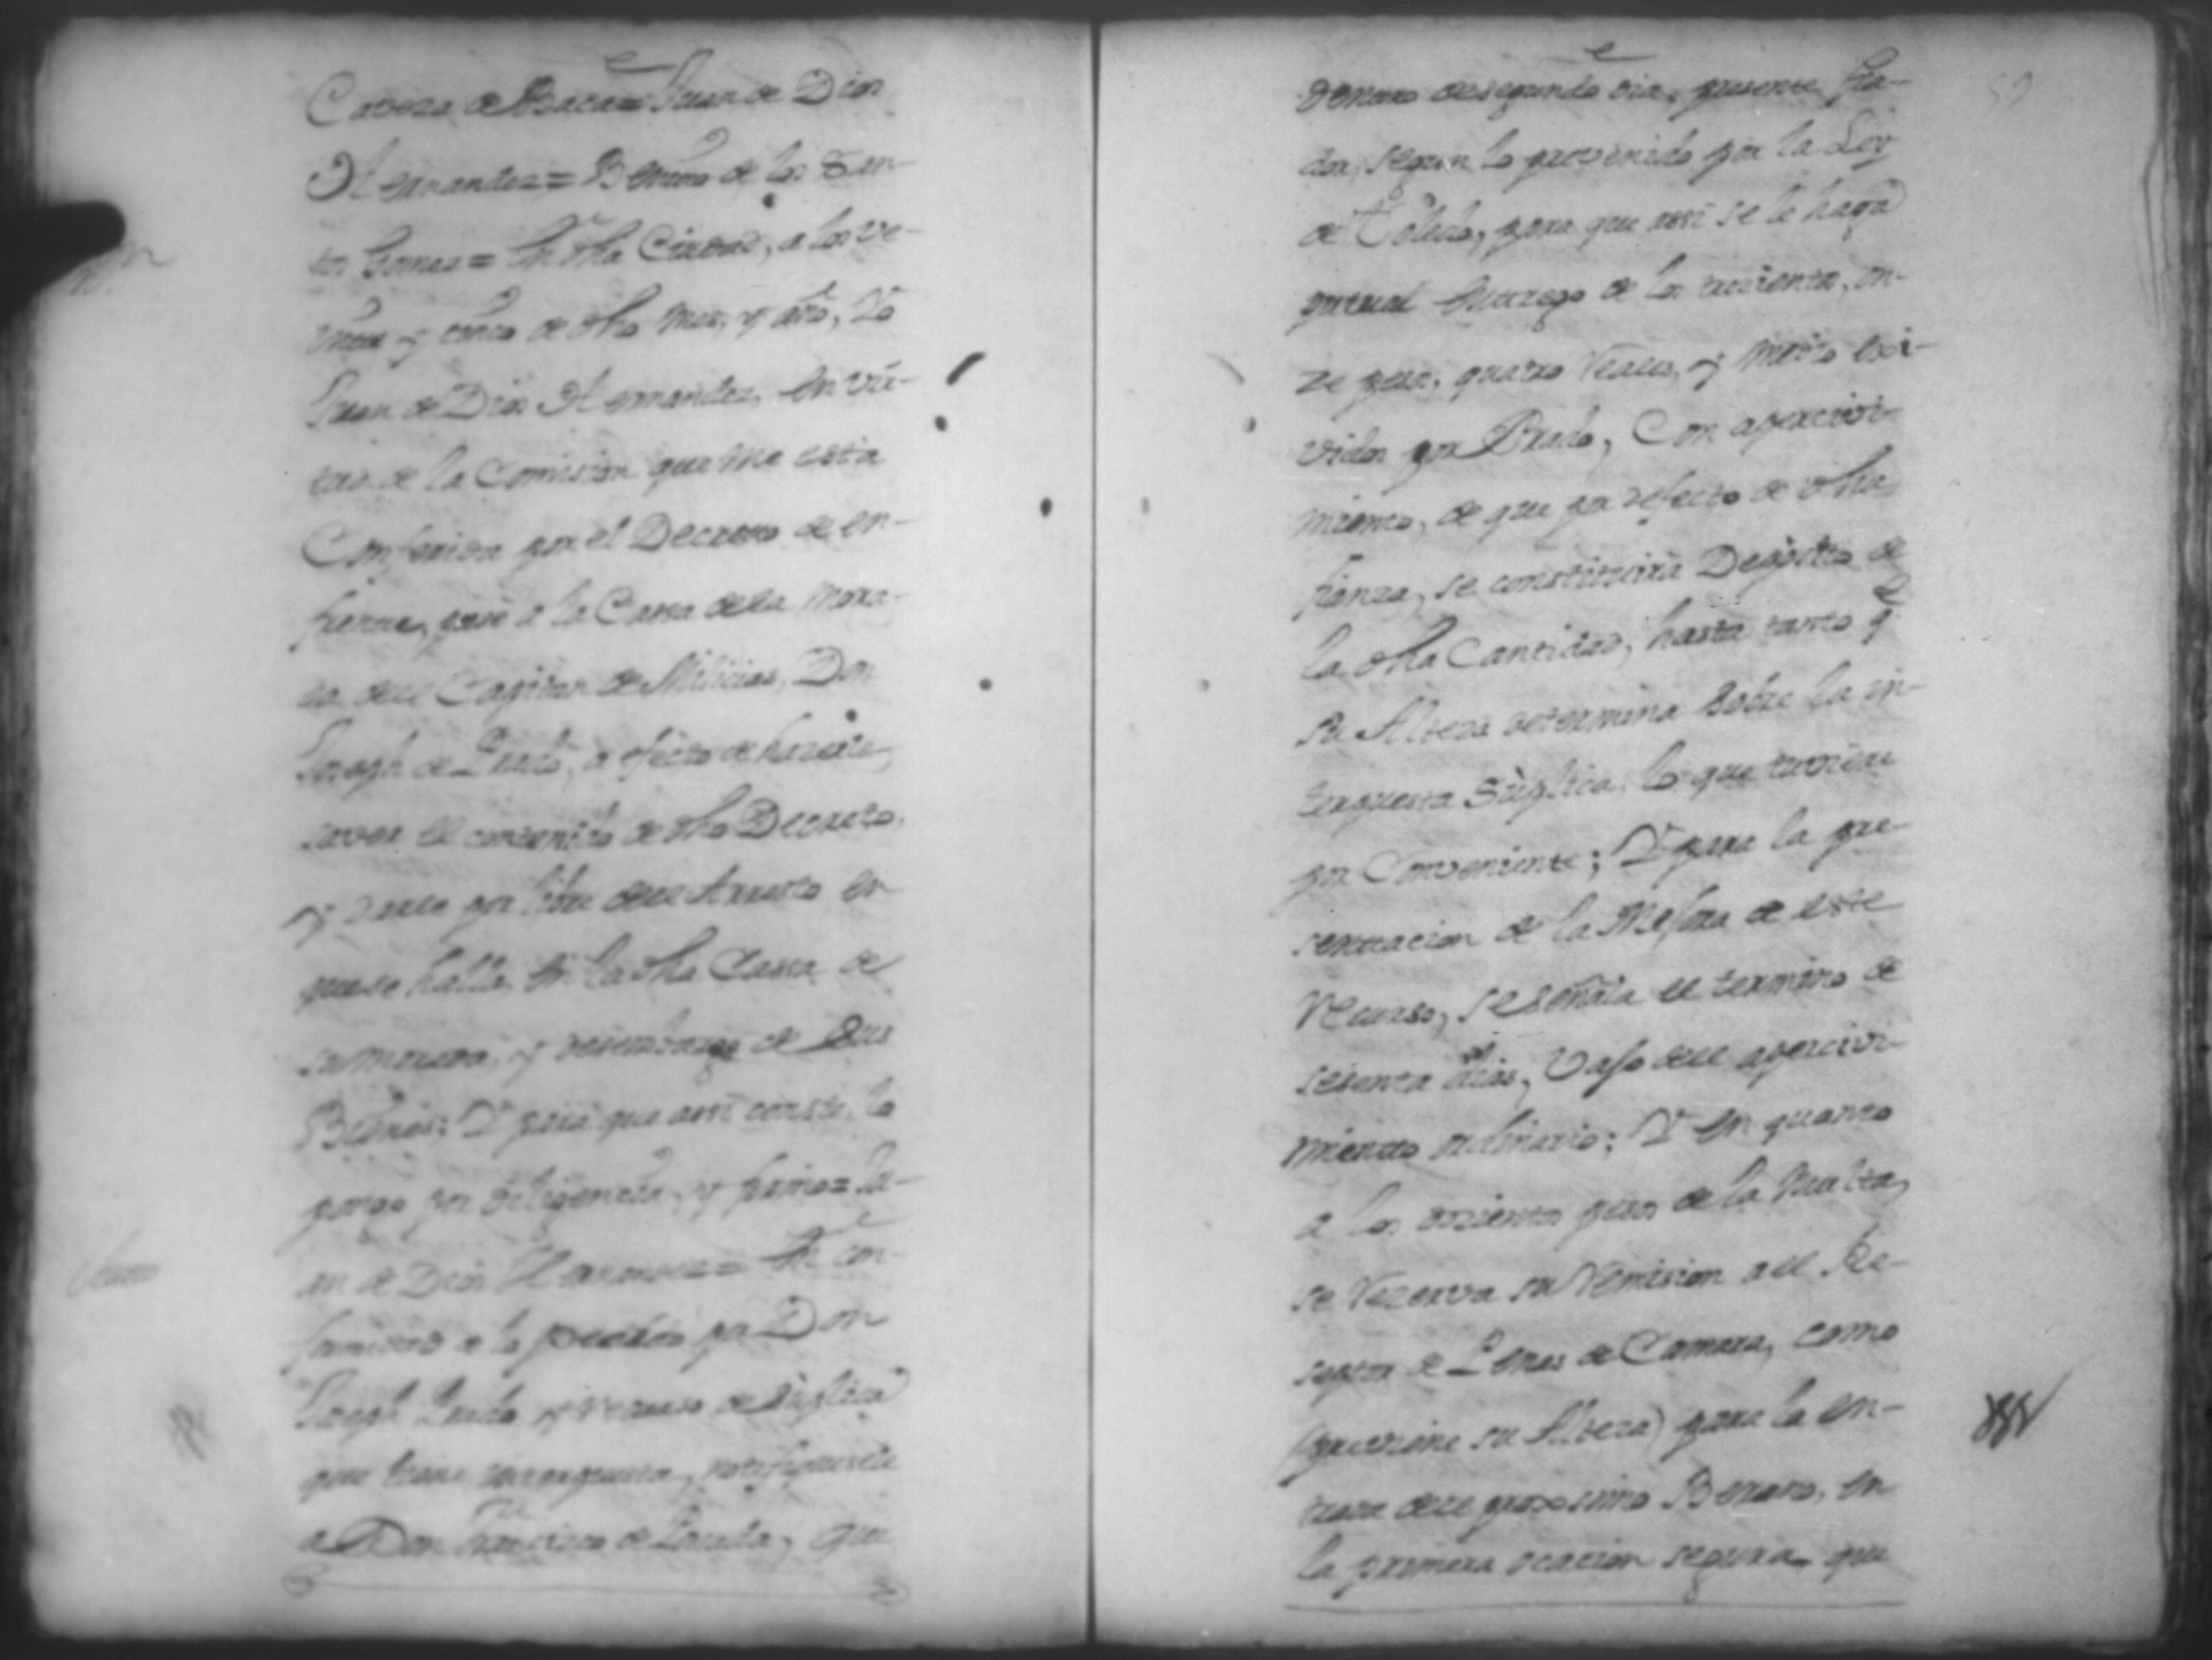 Caveza de Baca = Juan de Dios
Hernandez = Benito de los San-
tos Gomez = En dha Ciudad, a los ve-
inte y cinco de dho mes, y año, Yo
Juan de Dios Hernandez, en vir-
tud de la Comision que me esta
Conferida por el Decretto de en-
frente, pasé a la Cassa de la mora-
da dell Capitan de Milicias, Don
Joseph de Prado, a efecto de hazerle
saver el contenido de dho Decreto,
y darle por libre dell Arresto en
que se halla en la dha Cassa de
su morada, y desembargo de sus
Bienes; Y para que assi conste, lo
pongo por diligencia, y firmo = Ju-
an de Dios Hernandez = En con-
formidad a lo pedido por Don
Joseph Prado y recurso de suplica
que tiene interpuesta, notifiquesele
a Don Francisco de Parada, que
dentro de segundo dia, presente fia-
dor, segun lo prevenido por la Ley
de Toledo, para que assi se le haga
puntual entrego de los trecientos, on-
ze pesos, quatro reales, y medio exi-
vidos por Prado, Con apercivi-
miento, de que por defecto de dha
fianza, se constituirá Deposito de
la dha Cantidad, hasta tanto q.e
Su Alteza determina sobre la in-
terpuesta Suplica, lo que tuviere
por Conveniente; Y para la pre-
senttacion de la Mejora de este
Recurso, se señala el termino de
sesenta dias, Vajo dell apercivi-
miento ordinario; Y en quanto
a los docientos pesos de la Multa,
se rezerva su remision all Re-
septor de Penas de Camara, como
(previene su Alteza) para la en-
trada dell proximo Berano, en
la primera ocacion segura que